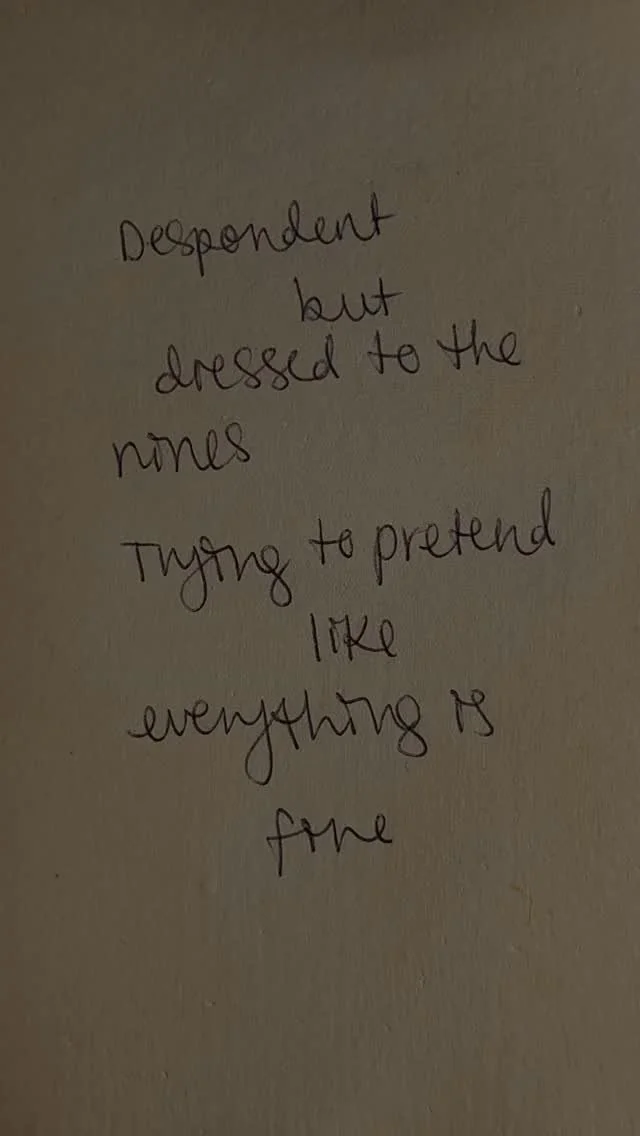 Despondent
but
dressed to the
nines
Trying to pretend
like
everything is
fine